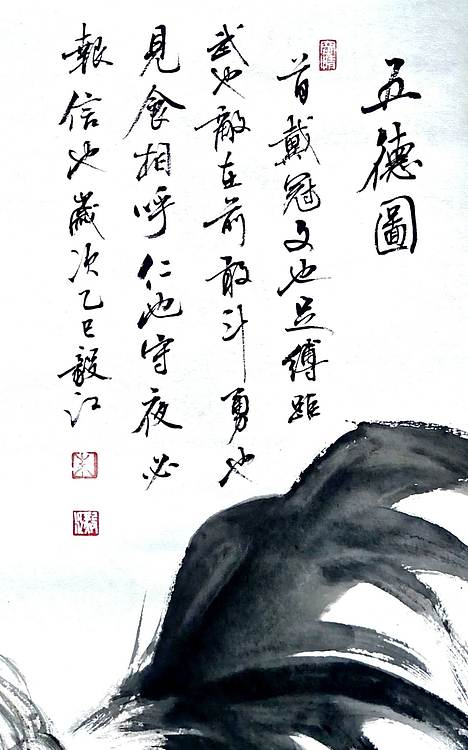 五德圖
首戴冠文也足縛距
武也敵在前敢斗勇也
見食相呼仁也守夜必
報信也歲次乙巳毅江